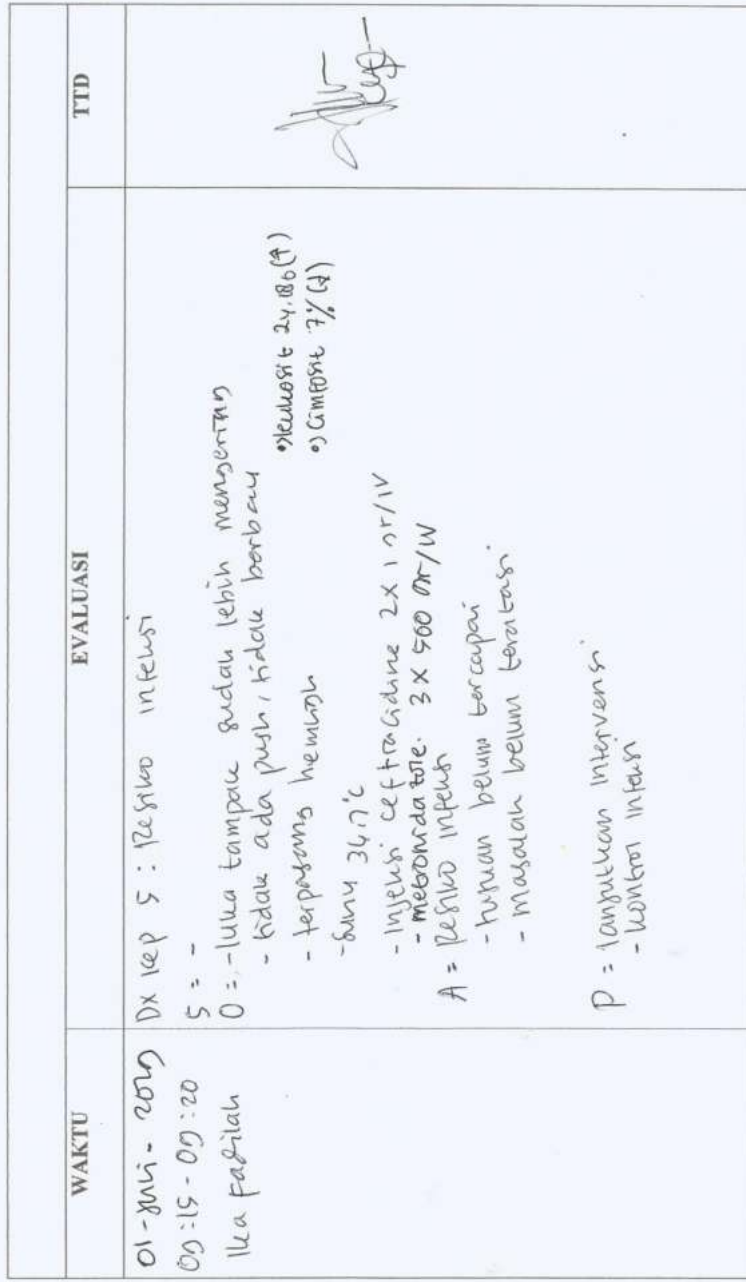 WAKTU
EVALUASI
TTD
01 - Juli - 2019
09:15 - 09:20
Ika Fadilah
Dx kep 5 : Resiko infeksi
S = -
O = - luka tampak sudah lebih mengering
- tidak ada push, tidak berbau
- terpasang
- Suhu 36,7°C
•) Leukosit 24.180 (↑)
•) Limfosit 7% (↓)
- Injeksi ceftracidine 2x1 gr/IV
- metronidatole. 3 x 500 /IV
A = Resiko infeksi
- tujuan belum tercapai
- masalah belum teratasi
P = lanjutkan intervensi
- kontrol infeksi